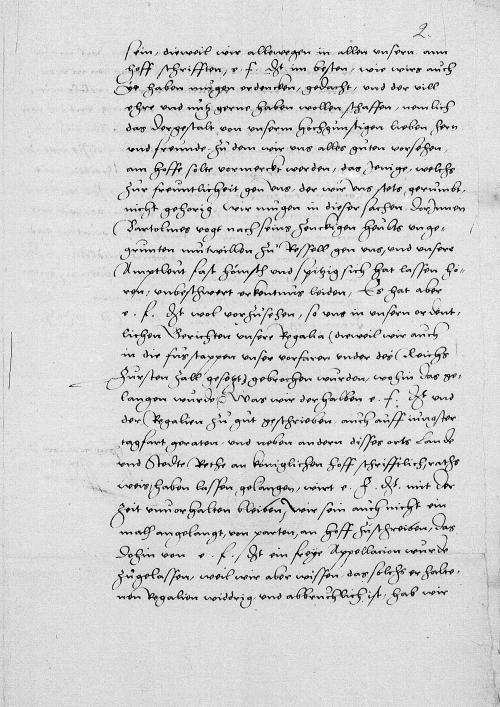 2.
sein, dieweil wir allewegen in allen unsern ann
hoff schrifften, e. f. Dt im besten, wie wirs auch
haben mugen erdencken, gedacht, und der vill
ehre und nutz gerne haben wollen schaffen, nemlich
das dergestalt von unserm hochgunstigen lieben hern
und freunde, zu dem wir uns alles guten vorsehen,
am hoffe solte vormerckt werden, das jenige, welchs
zur freuntlicheit gen uns, der wir uns stets gerumbt,
nicht gehorig. wir mugen in dieser sachen darinnen
Bartolmes vogt nach seins zenckigen heubts unge-
grunten mutwillen zu Ressell gen uns, und unsere
Amptleut fast honisch und spitzig sich hat lassen ho-
ren, unbeschwert erkentnus leiden, Es hat aber
e. f. Dt wol vorzusehen, so uns in unsern ordent-
lichen Gerichten unsere Regalia (dieweil wir auch
in die fusstappen unser vorfaren ender des Reichs
Fursten zall gesetzt) gebrochen wurden, wohin das ge-
langen wurde. Was wir derhalben e. f. Dt und
der Regalien zu gut geschrieben, auch auff jungster
tagfart geraten, und neben andern disses orts Lande
und Stedte Rethe an koniglichen hoff schrifftlich raths
weis haben lassen gelangen, wirt e. f. Dt. mit der
zeit unvorhalten bleiben, Wir sein auch nicht ein
mall angelangt, von parten, an hoff zuschreiben, das
dohin von e. f. Dt ein freye Appellation wurde
zugelassen, weil wir aber wissen, das solchs erhalte-
nen Regalien widdrig, und abbruchlich ist, hab wir